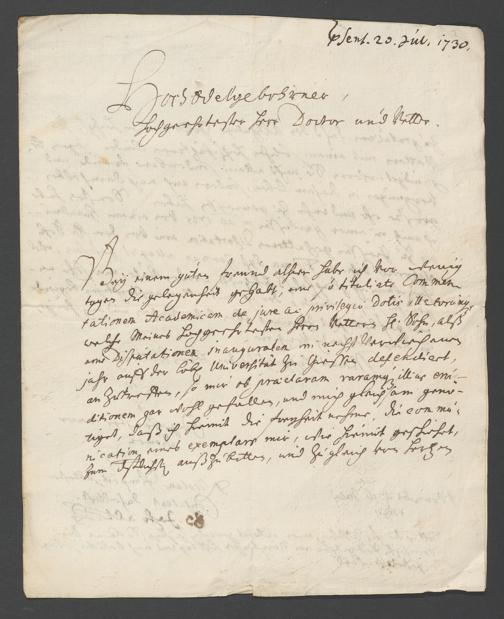 psent. 20. Jul. 1730.
HochEdelgebohrner,
Hochgeehrtester Herr Doctor und Vetter.
Bey einem guten freund alhier habe ich vor wenig
tagen die gelegenheit gehabt, eine so titulirte Commen-
tationem Academicam de jure ac privilegio Dotis
welche Meines Hochgeehrtesten Herrn Vetters H. Sohn, alß
eine Dissertationem inauguralem im nechst
jahr auff der Löbl. Universität zu Giessen defendiret,
anzutreffen, so mir ob praeclaram raramq. illius eru-
ditionem gar wohl gefallen, und mich gleich am
tiget, daß ich hiemit die freyheit nehme, die commu-
nication eines exemplars mir, wie hiemit geschiehet,
auß zu bitten, und zugleich von hertzen